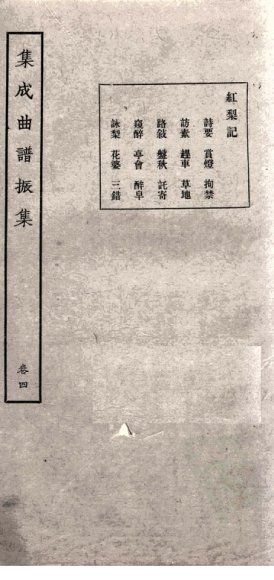 紅梨記
詩要 賞燈 拘禁
訪素 趕車 草地
路敍 盤秋 託寄
窺醉 亭會 醉皁
詠梨 花婆 三錯
集成曲譜振集
卷四